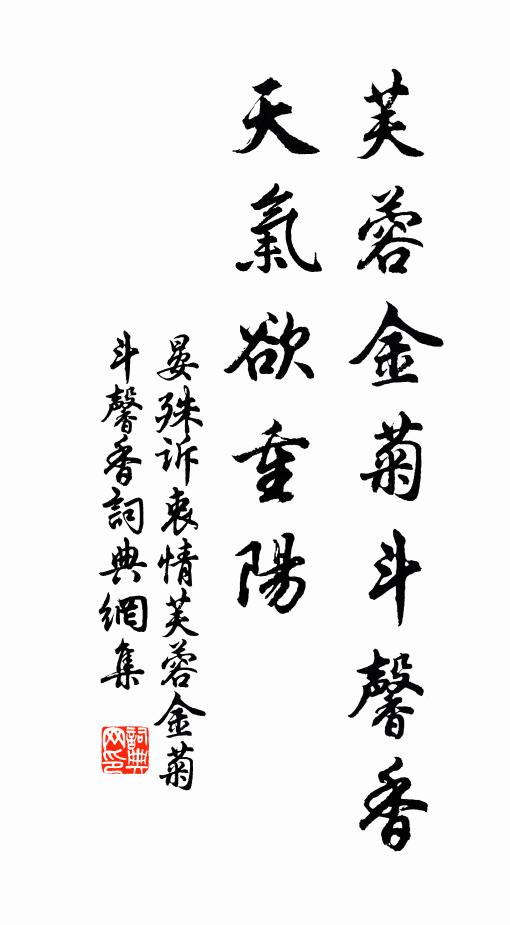 芙蓉金菊斗馨香
天氣欲重陽
晏殊訴衷情芙蓉金菊
斗馨香詞典網集
詞典网印